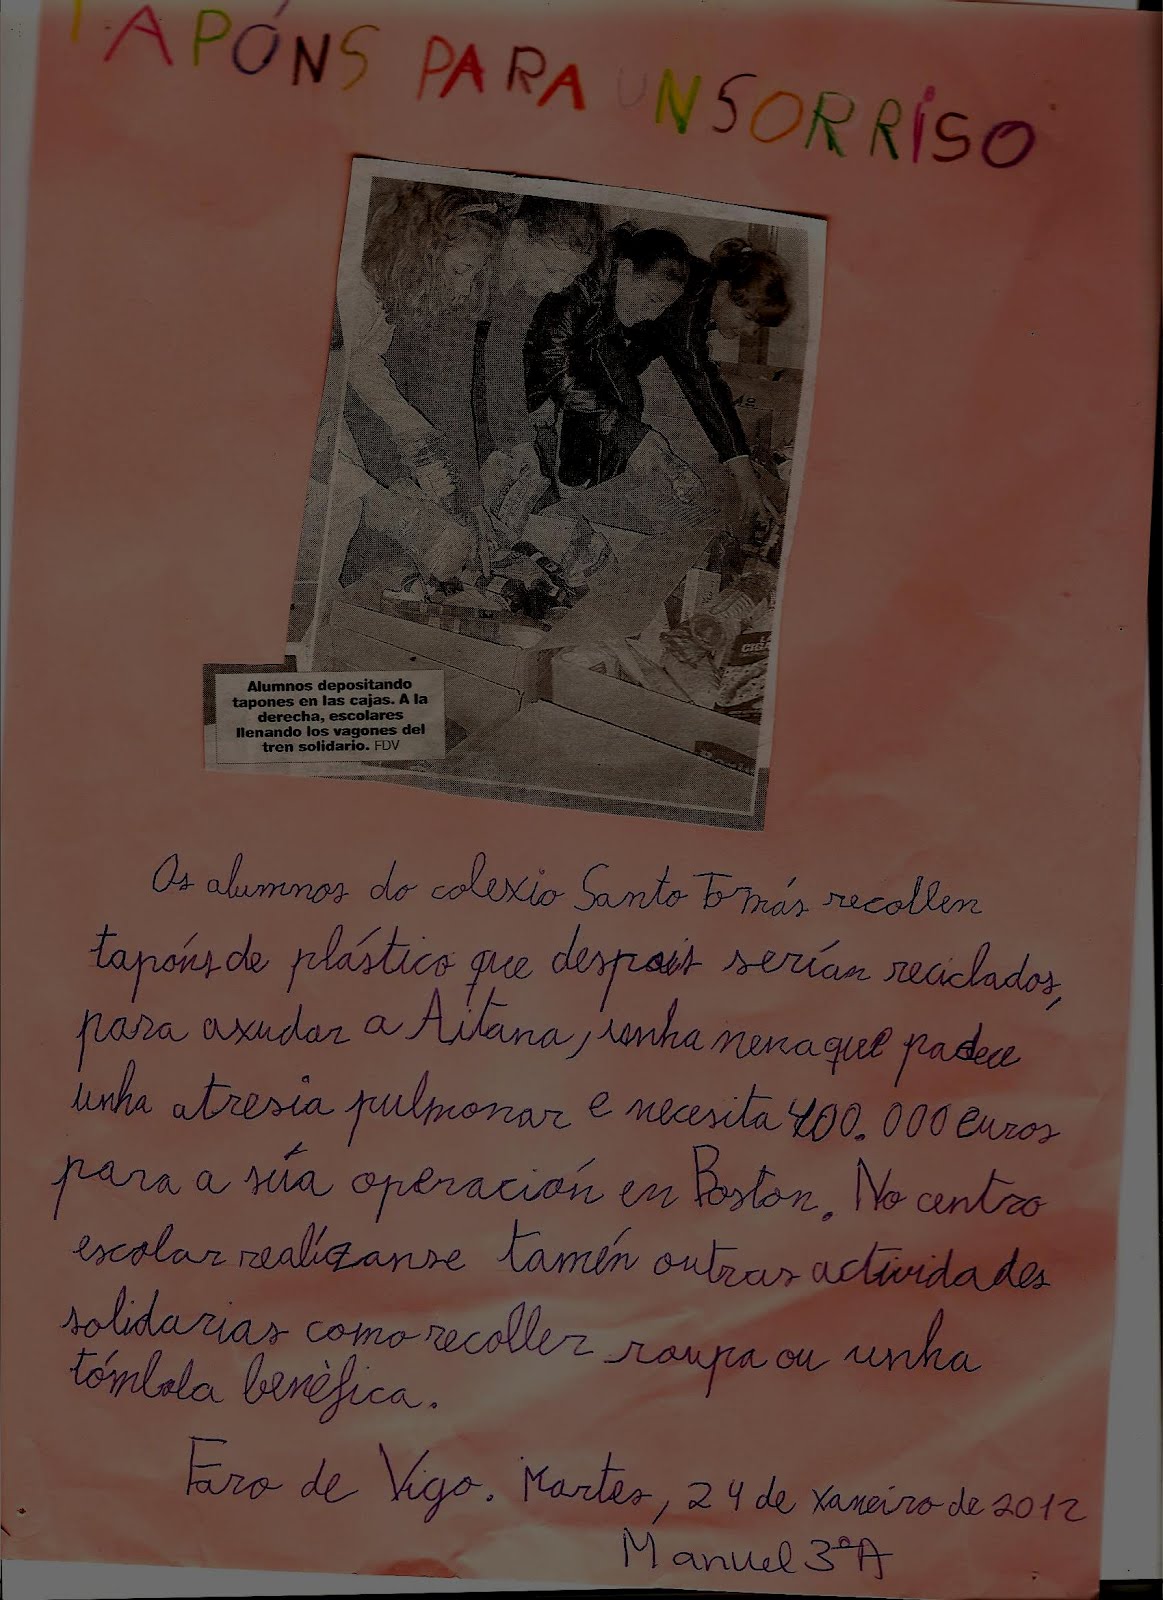 TAPÓNS PARA UN SORRISO
Alumnos depositando
tapones en las cajas. A la
derecha, escolares
llenando los vagones del
tren solidario. FDV
Os alumnos do colexio Santo Tomás recollen
tapóns de plástico que despois serían reciclados,
para axudar a Aitana, unha nena que padece
unha atresia pulmonar e necesita 400.000 euros
para a súa operación en Boston. No centro
escolar realízanse tamén outras actividades
solidarias como recoller roupa ou unha
tómbola benèfica.
Faro de Vigo. Martes, 24 de xaneiro de 2012
Manuel 3ºA